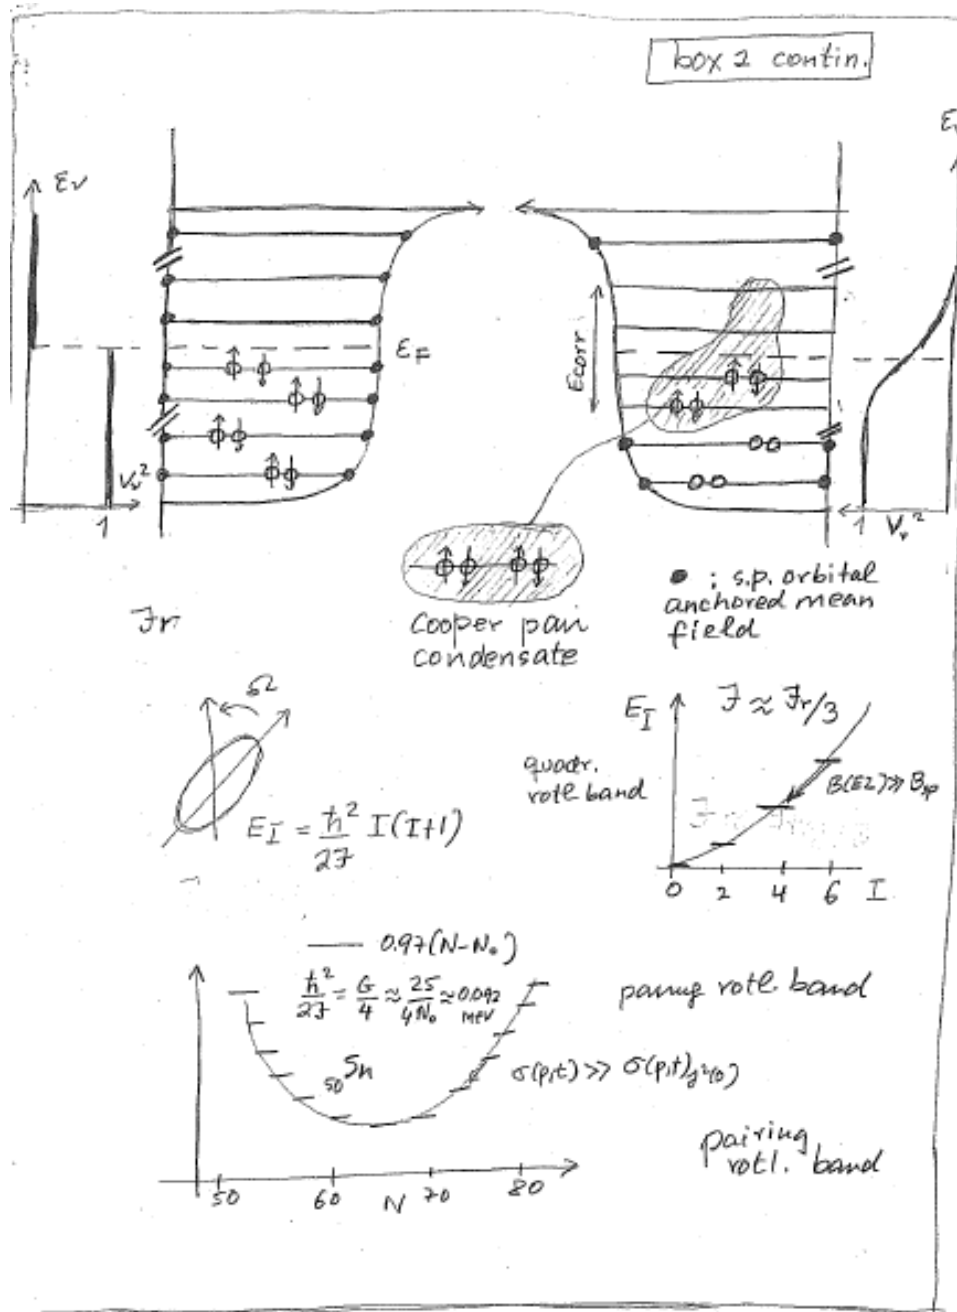 box 2 contin.
εν
εF
Vν²
1
Ecorr
Vν²
1
Cooper pair
condensate
● : s.p. orbital
anchored mean
field
ℐr
Ω
E_I = ħ²/2ℐ I(I+1)
quadr.
rotl band
E_I
ℐ ≈ ℐr/3
B(E2) ≫ Bsp
0 2 4 6 I
— 0.97(N-N₀)
ħ²/2ℐ = G/4 ≈ 25/4N₀ ≈ 0.092
MeV
₅₀Sn
pairing rotl. band
σ(p,t) ≫ σ(p,t)j²(0)
pairing
rotl. band
50 60 N 70 80